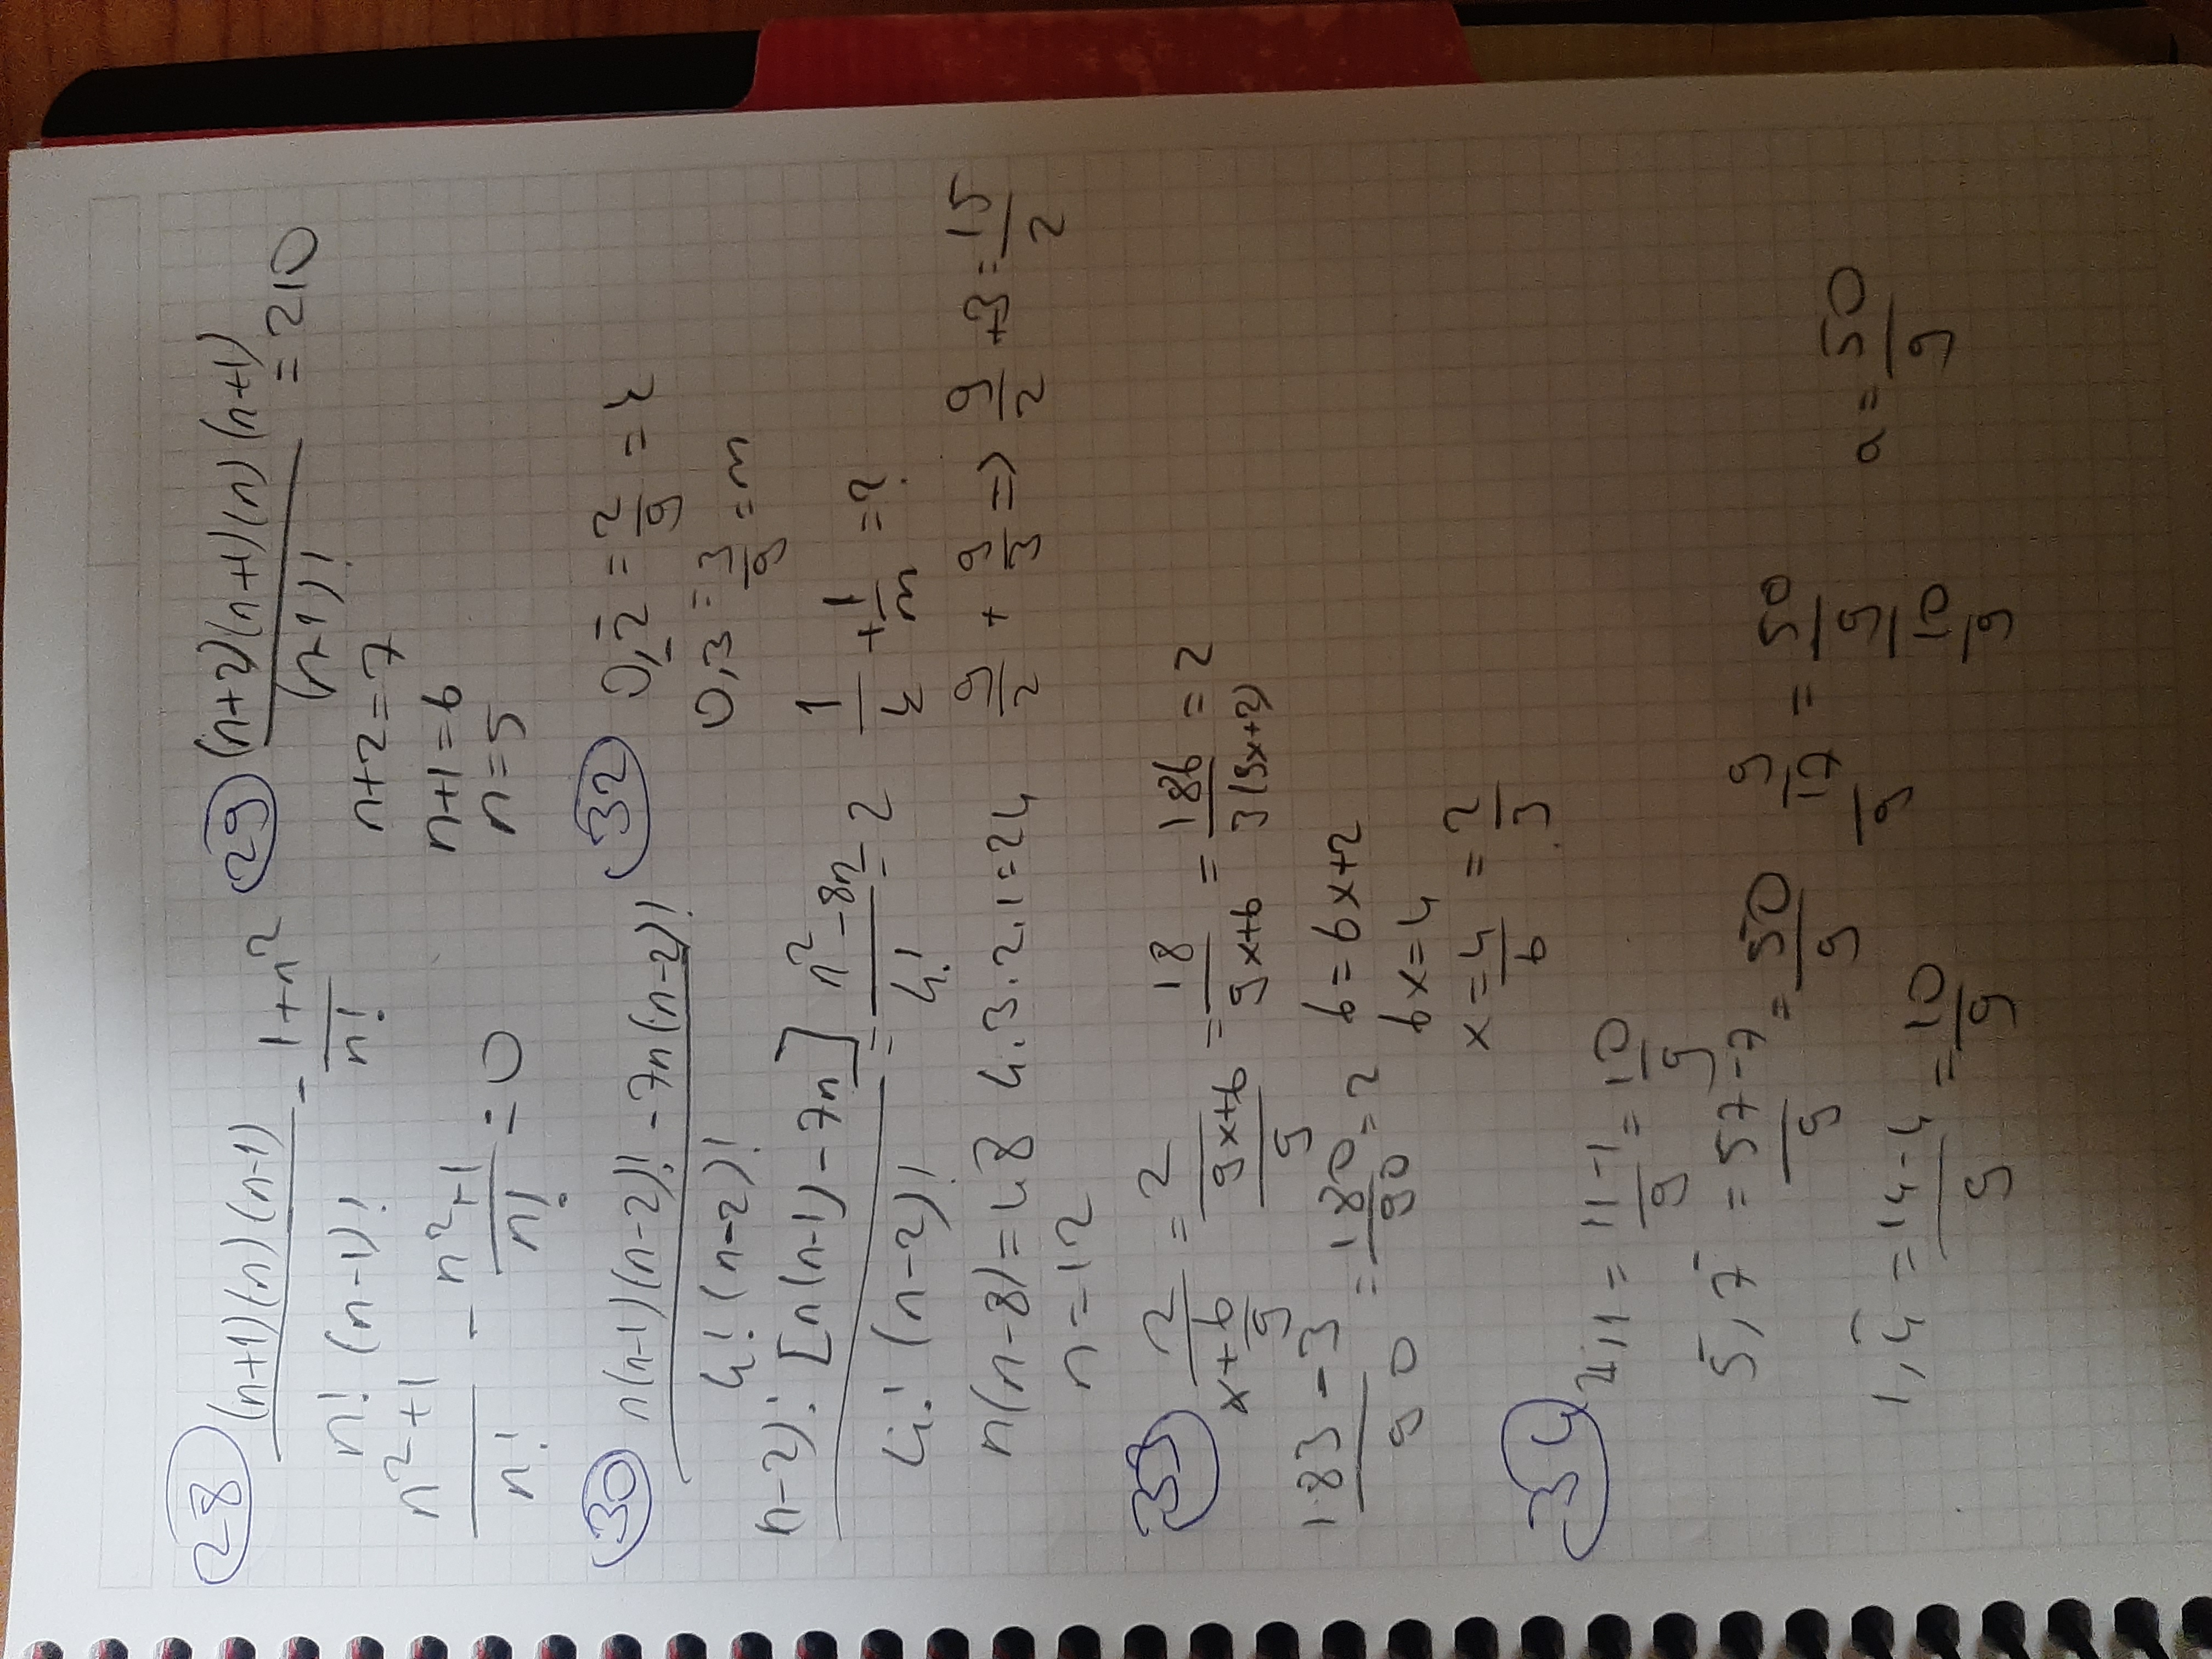 28 (n+1)(n)(n-1) / n! (n-1)! - 1+n² / n!
n²+1 / n! - n²+1 / n! = 0
29 (n+2)(n+1)(n)(n+1) / (n-1)! = 210
n+2=7
n+1=6
n=5
30 n(n-1)(n-2)! - 7n(n-2)! / 4! (n-2)!
n-2)! [n(n-1) - 7n] / 4! (n-2)! = n²-8n / 4! = 2
n(n-8)=48 4.3.2.1=24
n=12
32 0,2̄ = 2/9 = k
0,3 = 3/9 = m
1/k + 1/m = ?
9/2 + 9/3 => 9/2 + 3 = 15/2
33 2 / x+6/9 = 2 / 9x+6/9 = 18 / 9x+6 = 186 / 3(9x+2) = 2
183-3 / 90 = 180/90 = 2
6=6x+2
6x=4
x = 4/6 = 2/3
34
,11 = 11-1 / 9 = 10/9
5,7̄ = 57-7 / 9 = 50/9
1,4̄ = 14-4 / 9 = 10/9
a = 50/9